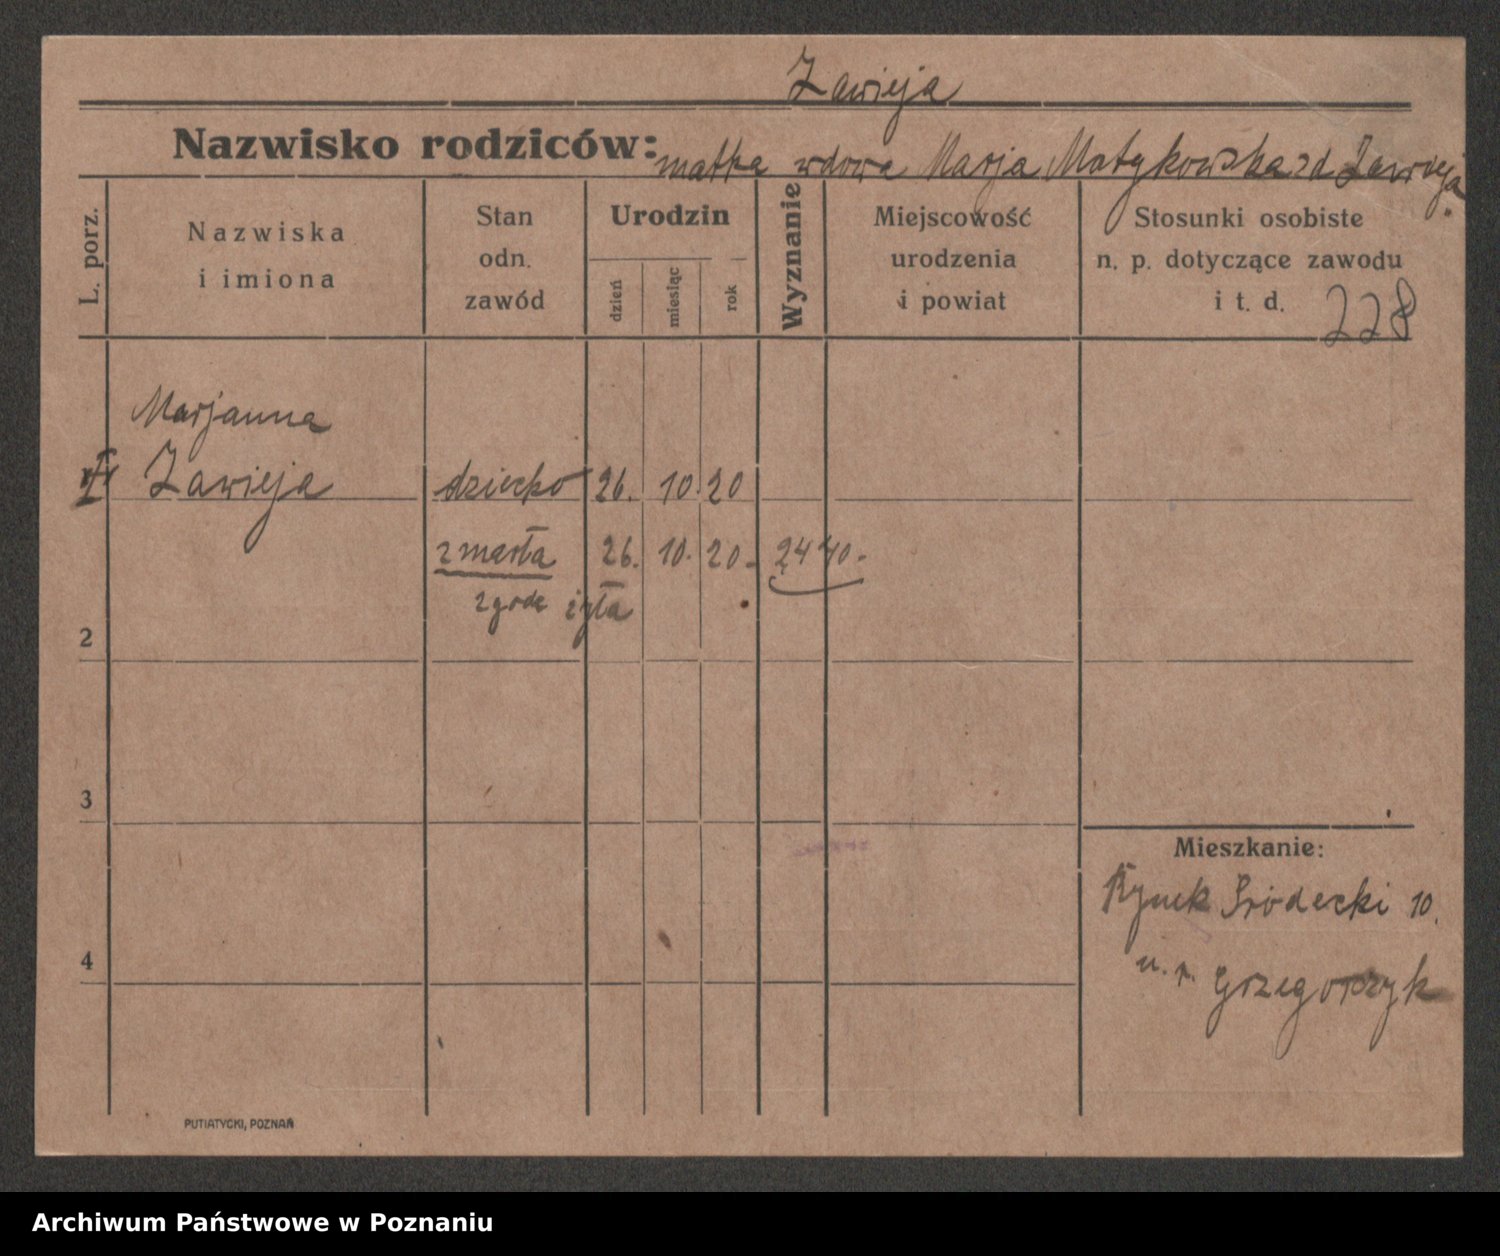 Zawieja
Nazwisko rodziców: matka wdowa Marja Matykowska zd Zawieja.
L. porz.
Nazwiska
i imiona
Stan
odn.
zawód
Urodzin
dzień
miesiąc
rok
Wyznanie
Miejscowość
urodzenia
i powiat
Stosunki osobiste
n. p. dotyczące zawodu
i t. d. 228
Marjanna
Zawieja dziecko 26. 10. 20
zmarła 26. 10. 20. 2440.
2
3
4
Mieszkanie:
Rynek Śródecki 10.
u. p. Grzegorczyk
PUTIATYCKI, POZNAŃ
Archiwum Państwowe w Poznaniu